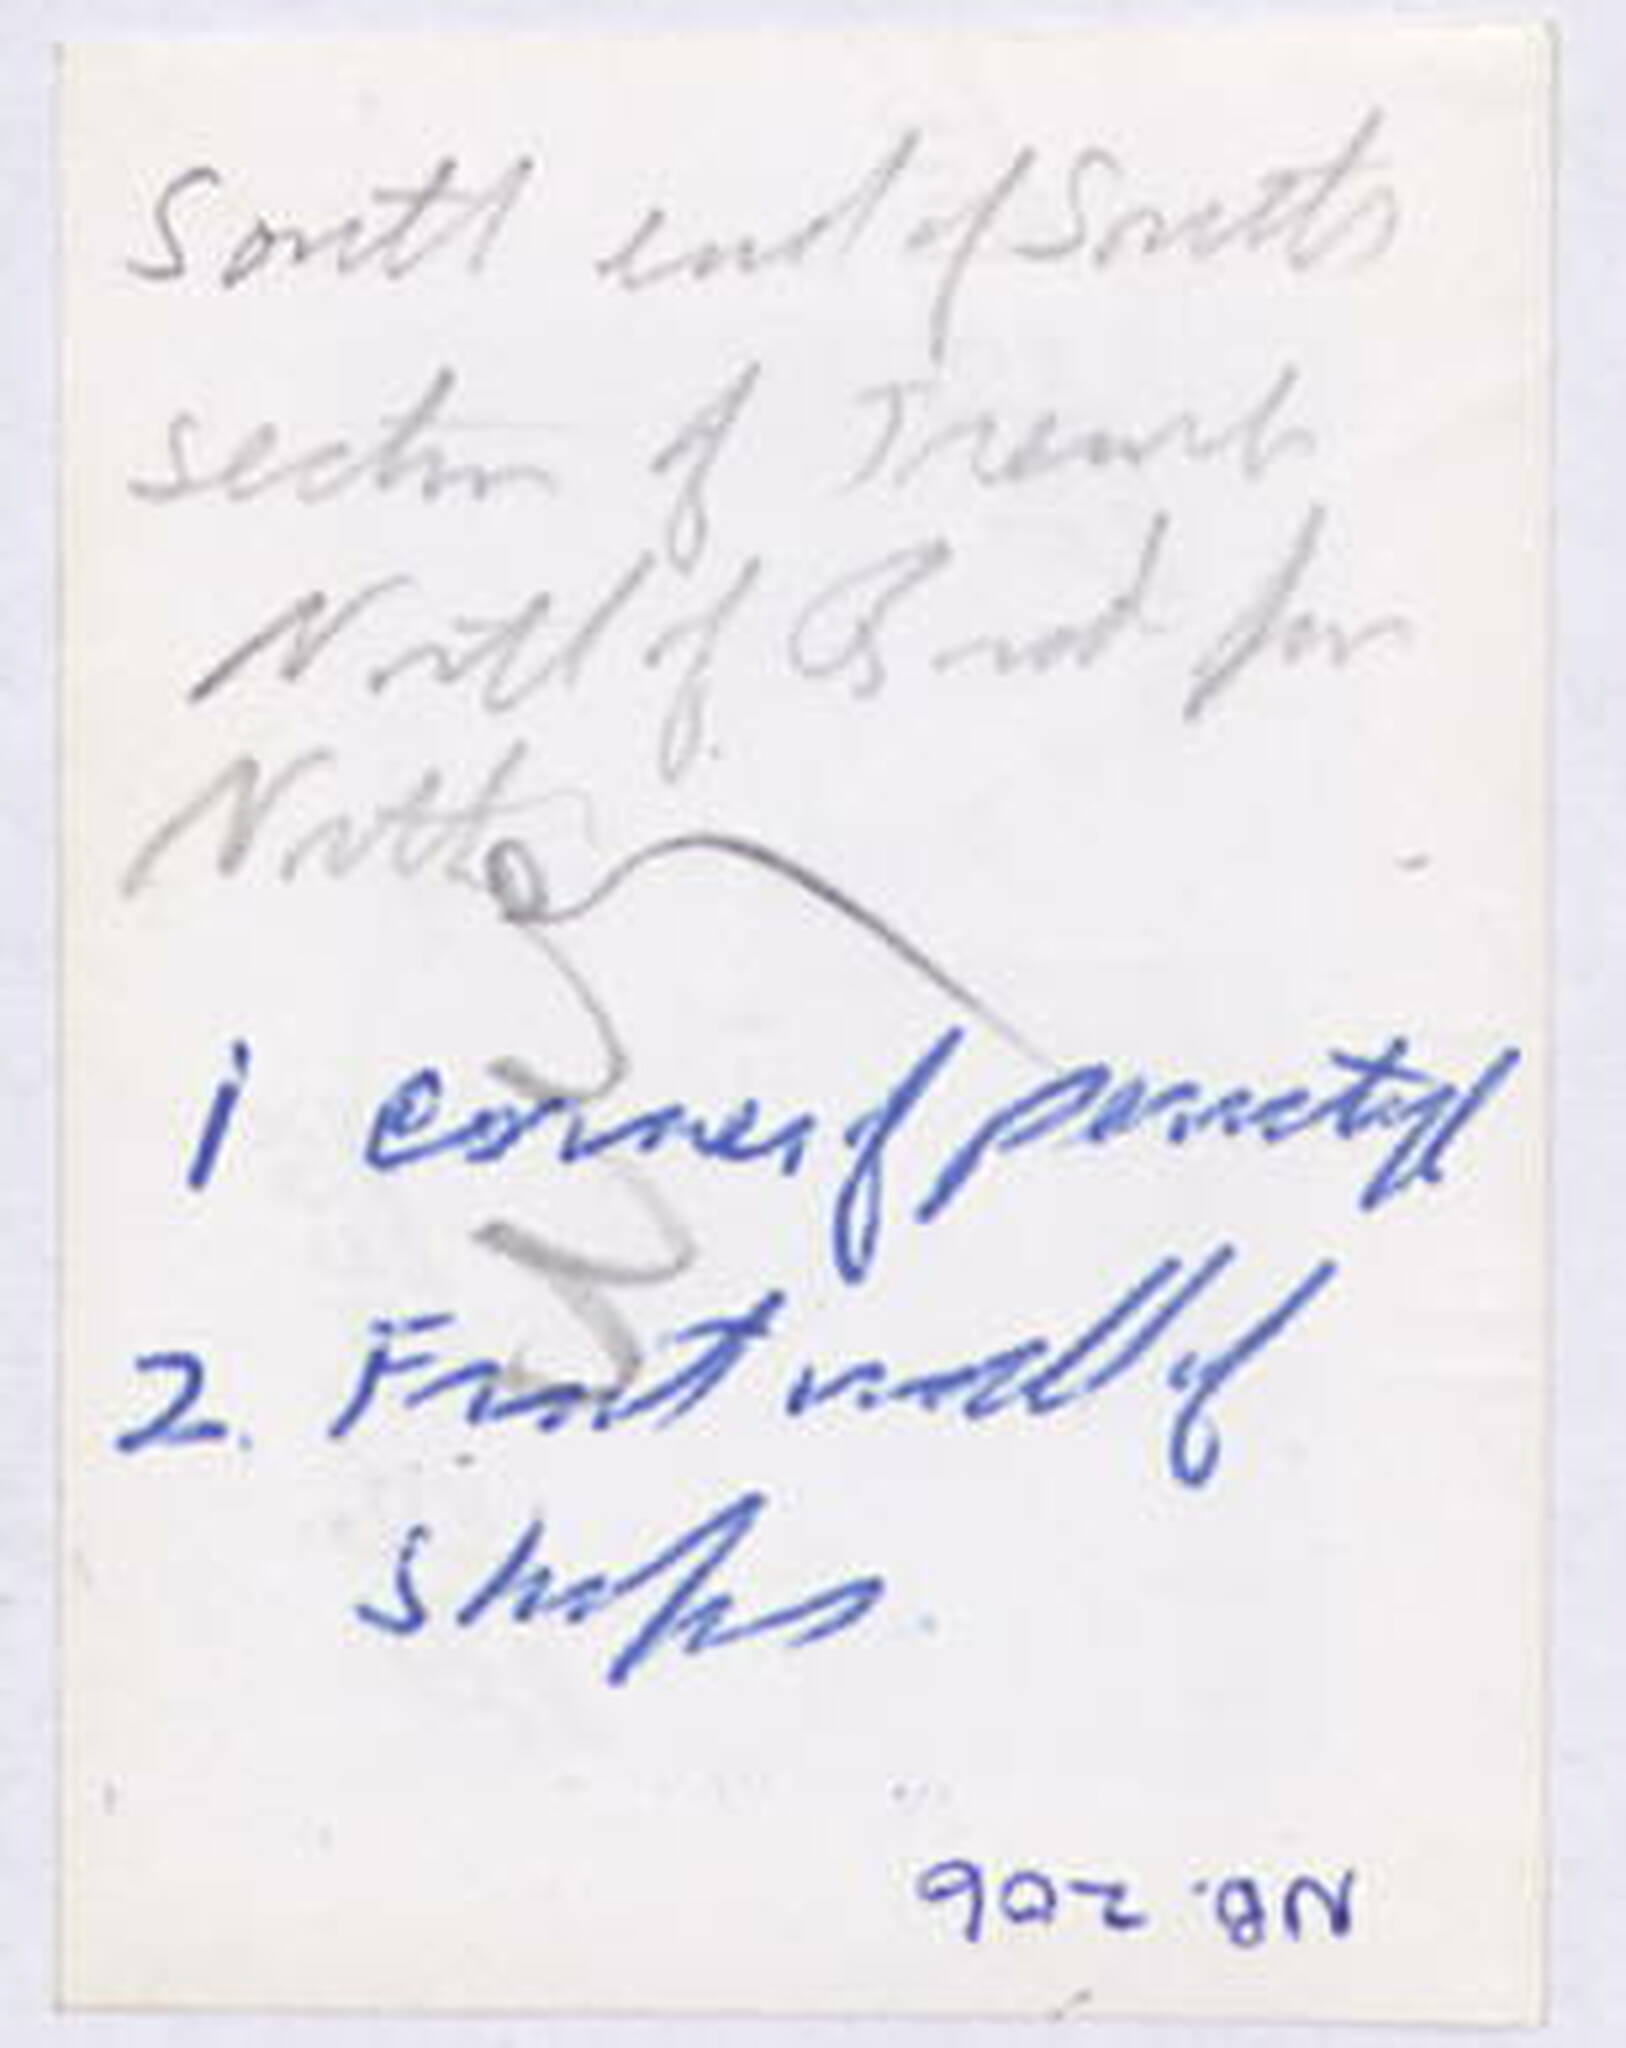 South end of South
section of Trench
North of Bud for
North
1 corner of
2. Front wall of
shops.
NB.206